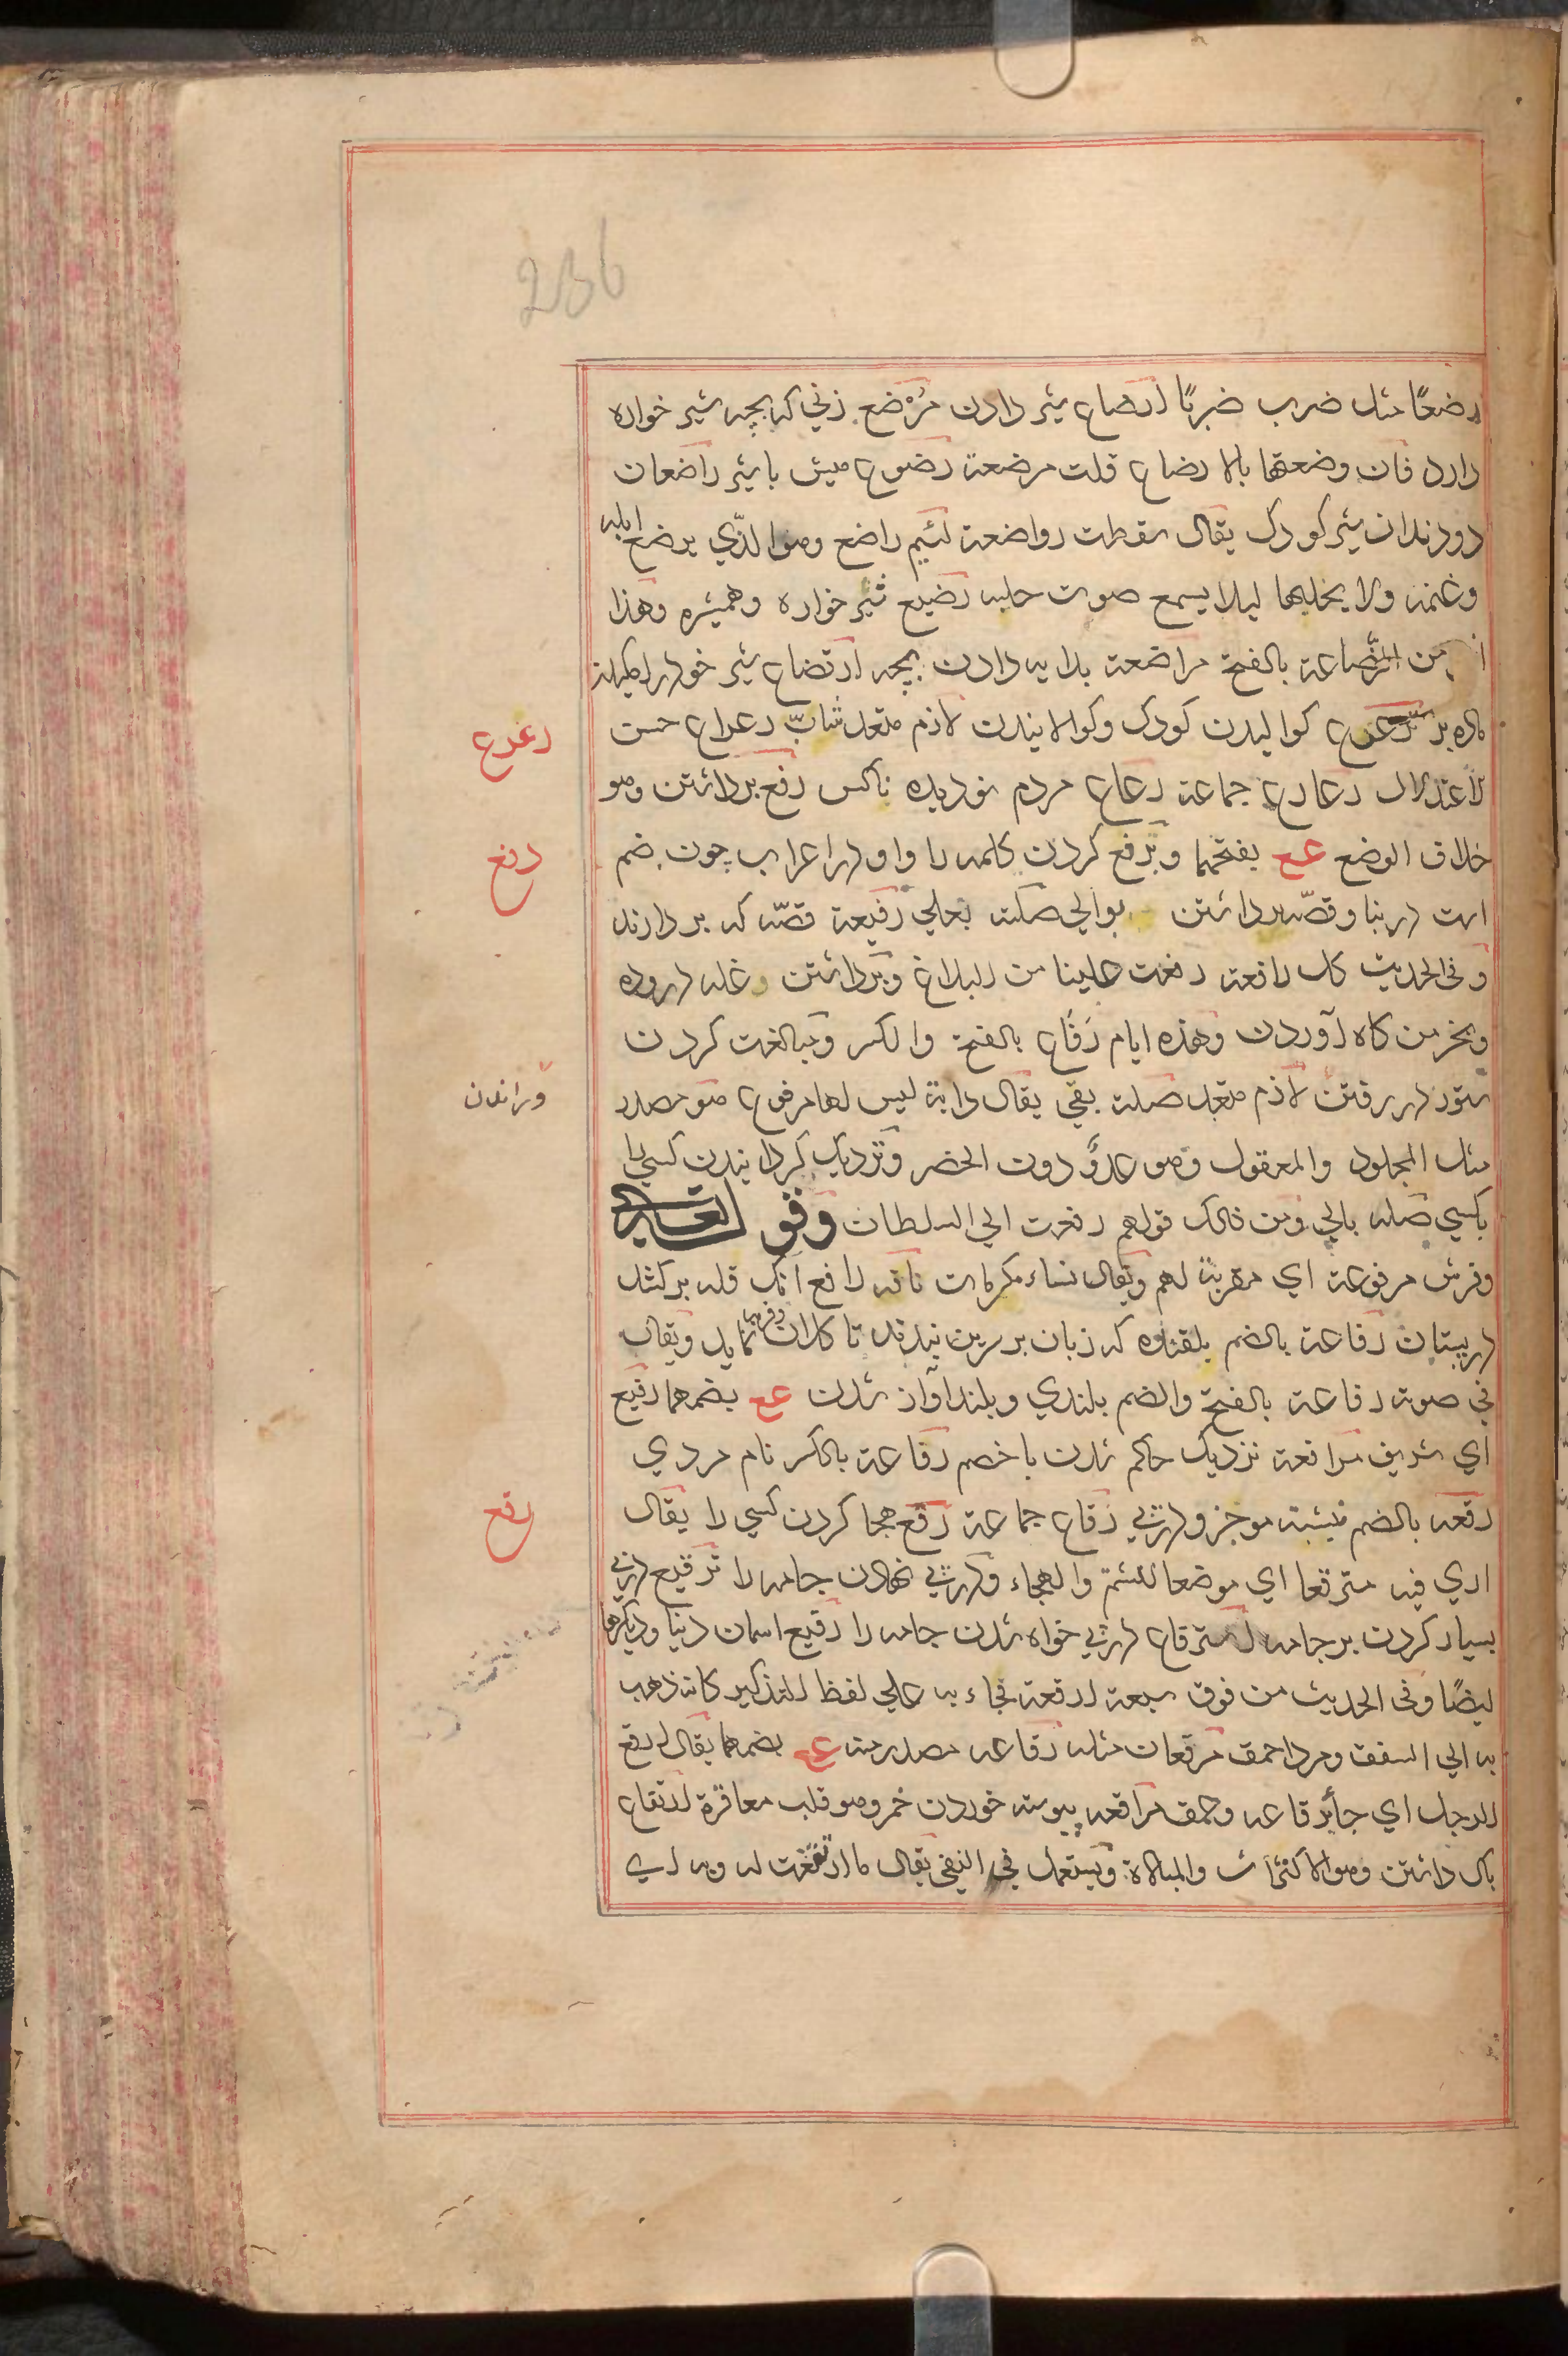 236
رضعًا مثل ضرب ضربًا ارضاع شیر دادن مُرْضع زنی که بچه شیر خواره
دارد فان وضعتها بالارضاع قلت مرضعة رضوع میش باشیر راضعان
دو دندان شیر کودک یقال سقطت رواضعه لئیم راضع وهو الذّي یرضع ابله
وغنمه ولا یحلبها لیلا یسمع صوت حلبه رضیع شیر خواره وهمشیره وهذا
من الرَّضاعة بالفتح مراضعة بدایه دادن بچه ارتضاع شیر خود
ترعرع کوالیدن کودک وکوالانیدن لازم متعد شابّ رعراع حسن
رعرع
الاعتدال رعارع جماعة رعاع مردم ناکس رفع برداشتن وهو
خلاف الوضع عع بفتحهما وبرفع کردن کلمه را واو در اعراب چون ضم
رفع
است در بنا وقصّه برداشتن بوالي صلته بعلي رفیعة قصّه که بردارند
وفی الحدیث کل رافعة رفعت علینا من البلاغ وبرداشتن وغله دروده
وبخرمن کاه آوردن وهذه ایام رَفاع بالفتح والکسر ومبالغت کردن
ستور در رفتن لازم متعد صلته بفی یقال دابة لیس لها مرفوع هو مصدر
وراندن
مثل المجلود والمعقول وهو عدوٌ دون الحضر ونزدیک گردانیدن کسی را
بکسي صلته بالي ومن ذالک قولهم رفعت الي السلطان وقو
وفرش مرفوعة اي مقربة لهم ویقال نساء مکرمات ناقه رافع آنک فله برکشد
در پستان رفاعة بالضم که زنان بر سرین بندند تا کلان وفربه نماید ویقال
في صوته رفاعة بالفتح والضم بلندي وبلند آواز شدن عع بضمهما رفیع
اي شریف مرافعة نزدیک حاکم شدن باخصم رفاعة بالکسر نام مردي
رقعه بالضم نبشته موجز و درپي رقاع جماعة رقع هجا کردن کسي را یقال
رقع
اري فیه مترقعا اي موضعا للشتم والهجاء ودرپي نهادن جامه را ترقیع درپي
بسیار کردن بر جامه استرقاع درپي خواه شدن جامه را رقیع اسمان دنیا ودیکرها
ایضًا وفی الحدیث من فوق سبعة ارقعة فجاء به علي لفظ التذکیر کانه ذهب
به الي السقف ومرد احمق مرقعان مثله رقاعه مصدر منه عع بضمهما یقال ارقع
الرجل اي جاء برقاعه وحمق مراقعه پیوسته خوردن خمر وهو قلب معاقرة ارتقاع
باک داشتن وهو الاکتراث والمبالاة ویستعمل في النفي یقال ما ارتقعت له وبه اي